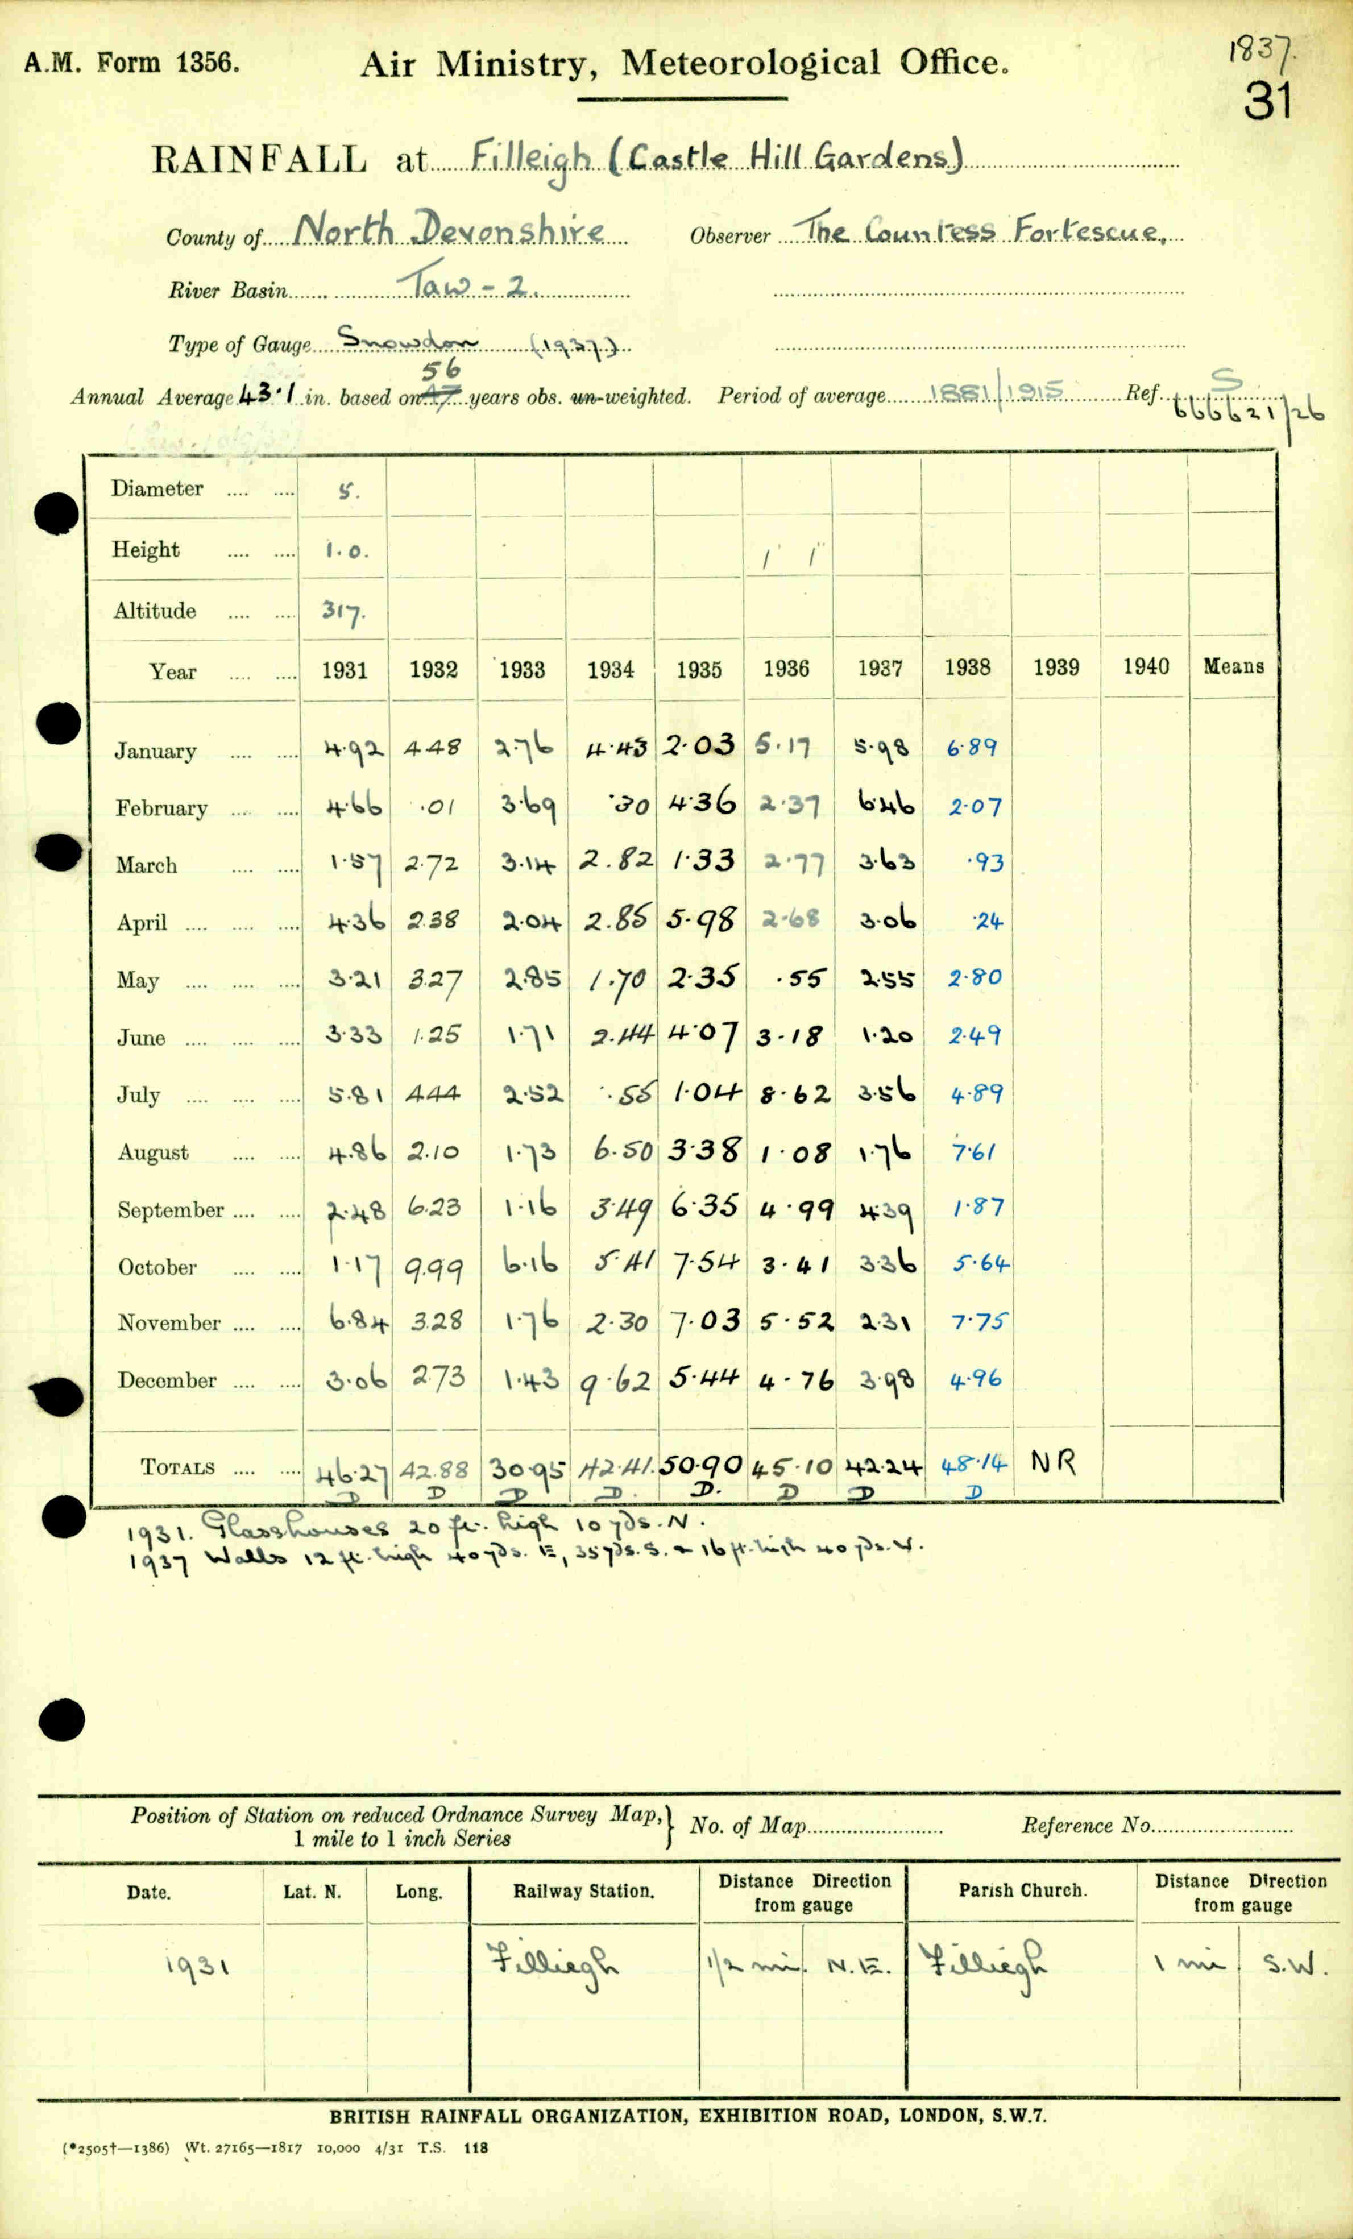 A.M. Form 1356. Air Ministry, Meteorological Office. 1837.
31
RAINFALL at Filleigh (Castle Hill Gardens)
County of North Devonshire Observer The Countess Fortescue,
River Basin Taw - 2.
Type of Gauge Snowdon (1937)
56
Annual Average 43·1 in. based on 47 years obs. un-weighted. Period of average 1881/1915 Ref. S
666621/26
Diameter .... .... 5.
Height .... .... 1.0. 1' 1"
Altitude .... .... 317.
Year .... .... 1931 1932 1933 1934 1935 1936 1937 1938 1939 1940 Means
January .... .... 4·92 4.48 2·76 4·43 2·03 5·17 5·98 6·89
February .... .... 4·66 ·01 3·69 ·30 4·36 2·37 6·46 2·07
March .... .... 1·57 2·72 3·14 2.82 1·33 2·77 3·63 ·93
April .... .... .... 4·36 2.38 2·04 2.85 5·98 2·68 3·06 ·24
May .... .... .... 3·21 3.27 2·85 1.70 2·35 ·55 2·55 2·80
June .... .... .... 3·33 1.25 1·71 2.44 4·07 3·18 1·20 2·49
July .... .... .... 5·81 4.44 2·52 ·55 1·04 8·62 3·56 4·89
August .... .... 4·86 2.10 1·73 6.50 3·38 1·08 1·76 7·61
September .... .... 2·48 6.23 1·16 3·49 6·35 4·99 4·39 1·87
October .... .... 1·17 9.99 6·16 5·41 7·54 3·41 3·36 5·64
November .... .... 6·84 3.28 1·76 2·30 7·03 5·52 2·31 7·75
December .... .... 3·06 2.73 1·43 9·62 5·44 4·76 3·98 4·96
TOTALS .... .... 46·27 42.88 30·95 42·41. 50·90 45·10 42·24 48·14 NR
D D D D. D. D D D
1931. Glasshouses 20 ft. high 10 yds. N.
1937 Walls 12 ft. high 40 yds. E, 35 yds. S. & 16 ft. high 40 yds. W.
Position of Station on reduced Ordnance Survey Map, } No. of Map Reference No.
1 mile to 1 inch Series
Date. Lat. N. Long. Railway Station. Distance Direction from gauge Parish Church. Distance Direction from gauge
1931 Filliegh 1/2 mi. N.E. Filliegh 1 mi S.W.
BRITISH RAINFALL ORGANIZATION, EXHIBITION ROAD, LONDON, S.W.7.
(*2505†—1386) Wt. 27165—1817 10,000 4/31 T.S. 118